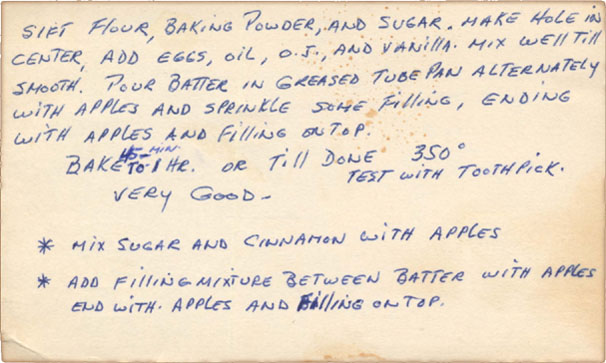 SIFT FLOUR, BAKING POWDER, AND SUGAR. MAKE HOLE IN
CENTER, ADD EGGS, OIL, O.J., AND VANILLA. MIX WELL TILL
SMOOTH. POUR BATTER IN GREASED TUBE PAN ALTERNATELY
WITH APPLES AND SPRINKLE SOME FILLING, ENDING
WITH APPLES AND FILLING ON TOP.
BAKE 45-MIN. TO 1 HR. OR TILL DONE 350°
TEST WITH TOOTHPICK.
VERY GOOD-
* MIX SUGAR AND CINNAMON WITH APPLES
* ADD FILLING MIXTURE BETWEEN BATTER WITH APPLES
END WITH. APPLES AND FILLING ON TOP.